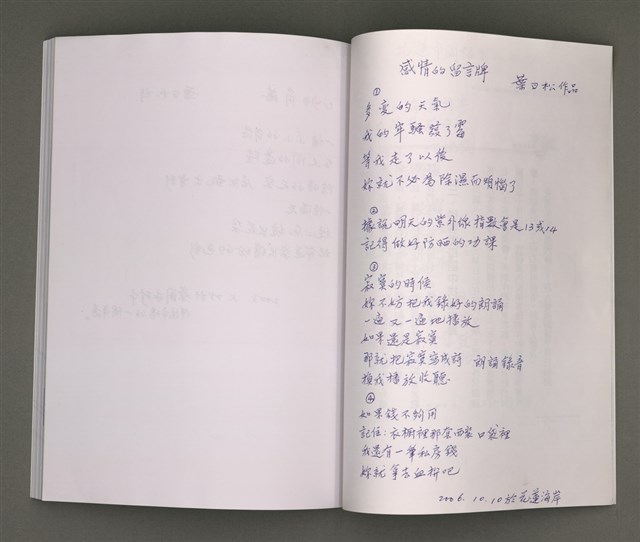 感情的留言牌
葉日松作品
①
多變的天氣
我的牢騷發了霉
等我走了以後
妳就不必為除濕而煩惱了
②
據說明天的紫外線指數會是13或14
記得做好防晒的功課
③
寂寞的時候
妳不妨把我錄好的朗誦
一遍又一遍地播放
如果還是寂寞
那就把寂寞寫成詩 朗誦錄音
換我播放收聽
④
如果錢不夠用
記住：衣櫥裡那套西裝口袋裡
我還有一筆私房錢
妳就拿去血拼吧
2006.10.10於花蓮海岸